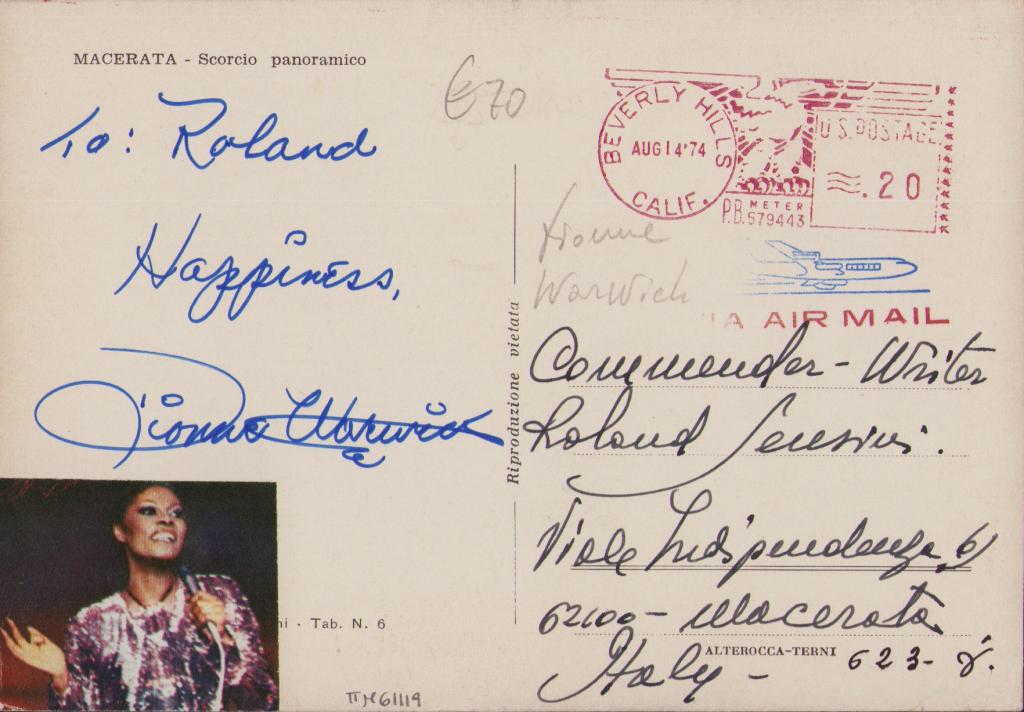 MACERATA - Scorcio panoramico
€70
To: Roland
Happiness,
Dionne Warwick
- Tab. N. 6
Riproduzione vietata
BEVERLY HILLS
AUG 14 '74
CALIF.
U.S. POSTAGE
.20
METER
P.B. 579443
Warwick
VIA AIR MAIL
Commender - Writer
Roland Sensini.
Viale Indipendenza, 6/
62100 - Macerata
Italy -
ALTEROCCA-TERNI
623-